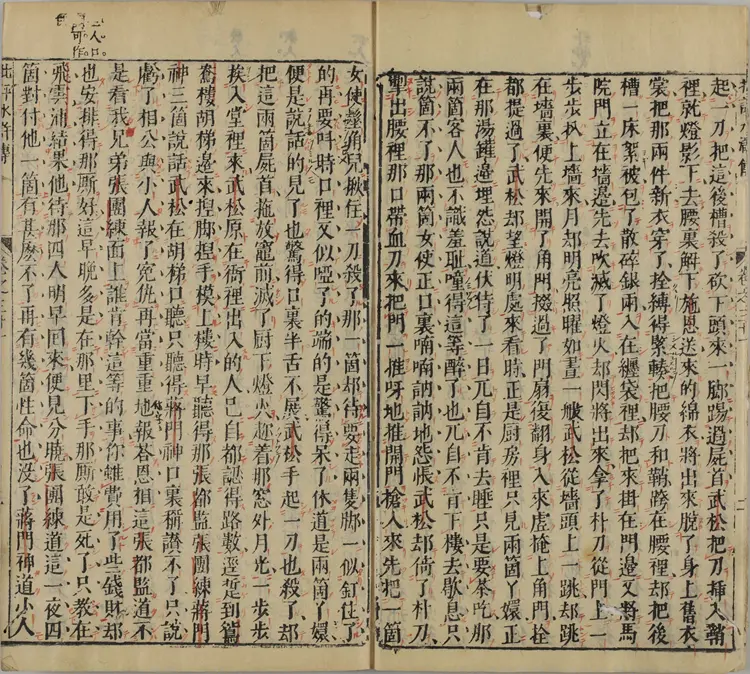 起一刀把這後槽殺了砍下頭來一脚踢過屍首武松把刀插入鞘
裡就燈影下去腰裏解下施恩送來的綿衣將出來脫了身上舊衣
裳把那兩件新衣穿了拴縛得緊輳把腰刀和鞘跨在腰裡却把後
槽一床絮被包了散碎銀兩入在纏袋裡却把來掛在門邊又將馬
院門立在墻邊先去吹滅了燈火却閃將出來拿了朴刀從門上一
步步扒上墻來月却明亮照曜如晝一般武松從墻頭上一跳却跳
在墻裏便先來開了角門掇過了門扇復翻身入來虗掩上角門栓
都提過了武松却望燈明處來看時正是厨房裡只見兩箇丫嬛正
在那湯罐邊埋怨說道伏侍了一日兀自不肯去睡只是要茶吃那
兩箇客人也不識羞耻噇得這等醉了也兀自不肯下樓去歇息只
說箇不了那兩箇女使正口裏喃喃訥訥地怨悵武松却倚了朴刀
掣出腰裡那口帶血刀來把門一推呀地推開門搶入來先把一箇
女使髽角兒揪住一刀殺了那一箇却待要走兩隻脚一似釘住了
的再要叫時口裡又似啞了的端的是驚得呆了休道是兩箇丫嬛
便是說話的見了也驚得口裏半舌不展武松手起一刀也殺了却
把這兩箇屍首拖放竈前滅了厨下燈火趂着那窓外月光一步步
挨入堂裡來武松原在衙裡出入的人已自都認得路數逕踅到鴛
鴦樓胡梯邊來捏脚捏手摸上樓時早聽得那張都監張團練蔣門
神三箇說話武松在胡梯口聽只聽得蔣門神口裏稱讚不了只說
虧了相公與小人報了寃仇再當重重地報荅恩相這張都監道不
是看我兄弟張團練面上誰肯幹這等的事你雖費用了些錢財却
也安排得那厮好這早晚多是在那里下手那厮敢是死了只教在
飛雲浦結果他待那四人明早回來便見分曉張團練道這一夜四
箇對付他一箇有甚麽不了再有幾箇性命也没了蔣門神道小人